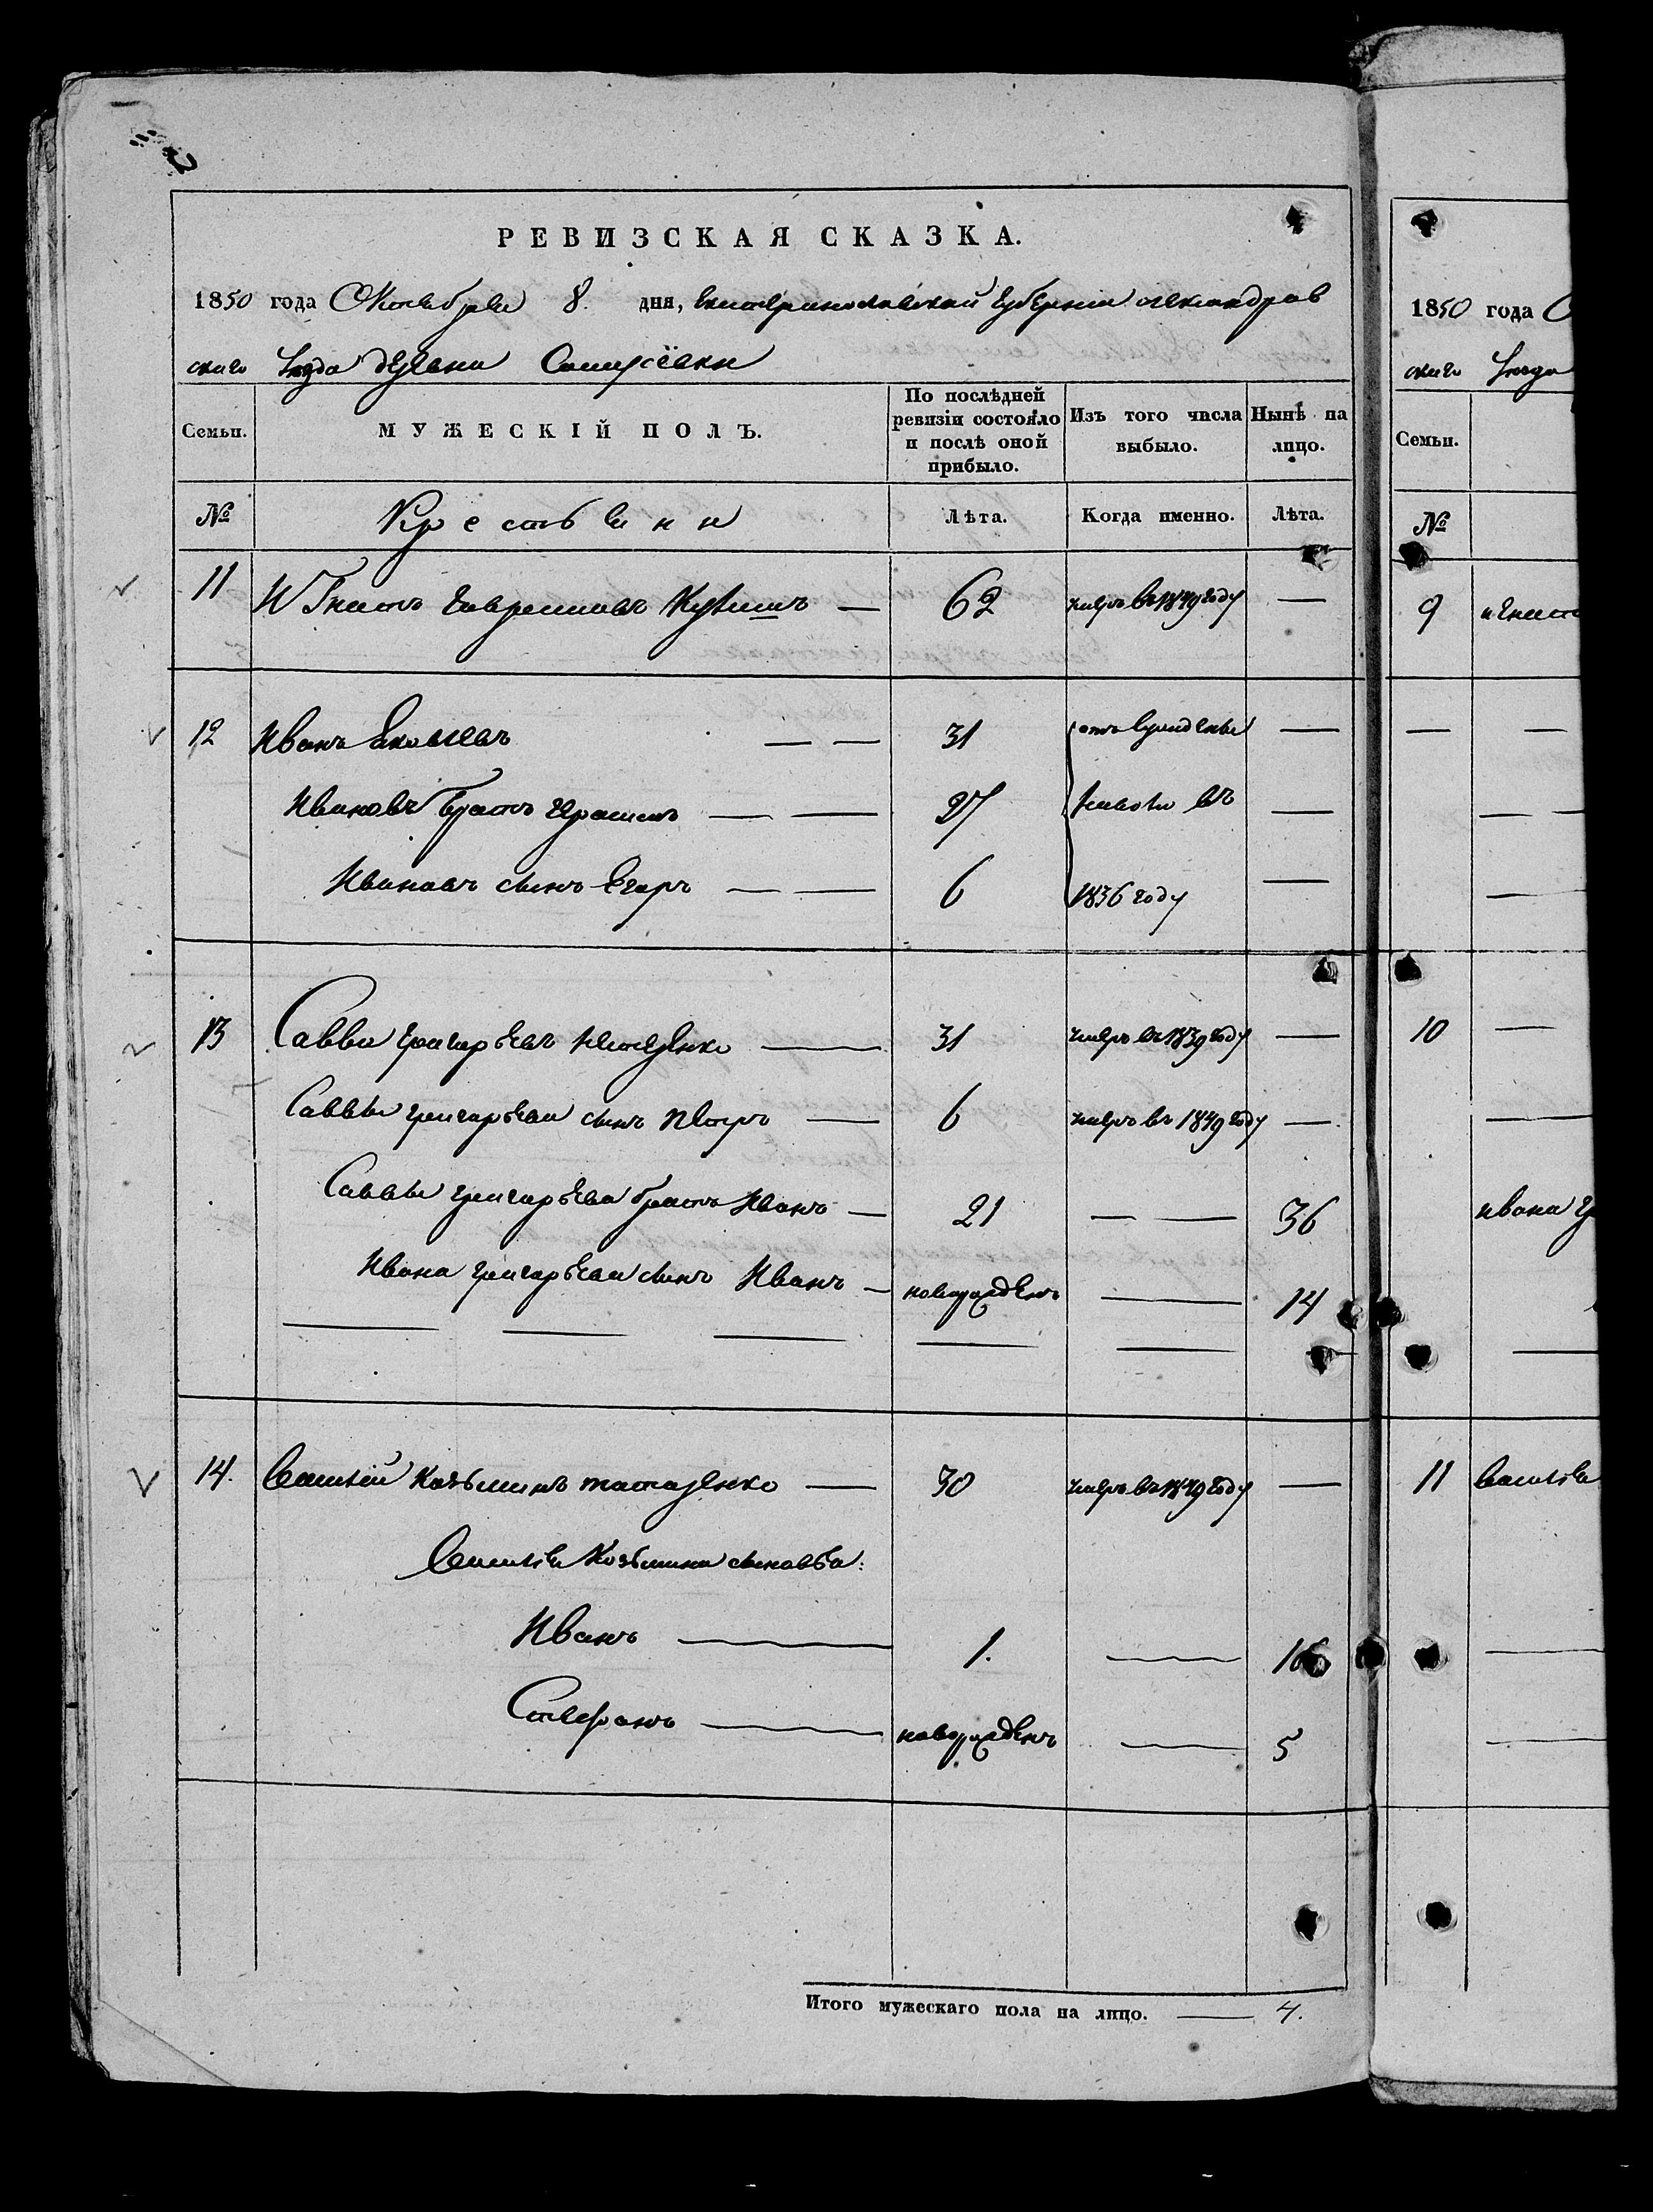 РЕВИЗСКАЯ СКАЗКА.
1850 года Октября 8. дня, Екатеринославской Губернии Александров
скаго Уезда деревни
Семьи.
МУЖЕСКІЙ ПОЛЪ.
По послѣдней ревизіи состояло и послѣ оной прибыло.
Изъ того числа выбыло.
Нынѣ на лицо.
№
Крестьяни
Лѣта.
Когда именно.
Лѣта.
11 Игнатъ Гавриловъ — 62 умеръ въ 1849 году —
12 Иванъ Яковлевъ — — 31 —
Ивановъ братъ Герасимъ — — 27 въ —
Ивановъ сынъ Егоръ — — 6 1836 году —
13 Савва Григорьевъ — 31 умеръ въ 1839 году —
Саввы Григорьева сынъ Петръ — 6 умеръ въ 1849 году —
Саввы Григорьева братъ Иванъ — 21 — — 36
Ивана Григорьева сынъ Иванъ — новорожденъ — 14
14. Василій Козьминъ — 30 умеръ въ 1849 году —
Василія Козьмина сыновья:
Иванъ — 1. — 16
Стефанъ — новорожденъ — 5
Итого мужескаго пола на лицо. — 4.
1850 года О
скаго Уезда
Семьи.
№
9 Игнат
10
Ивана Гр
11 Василія